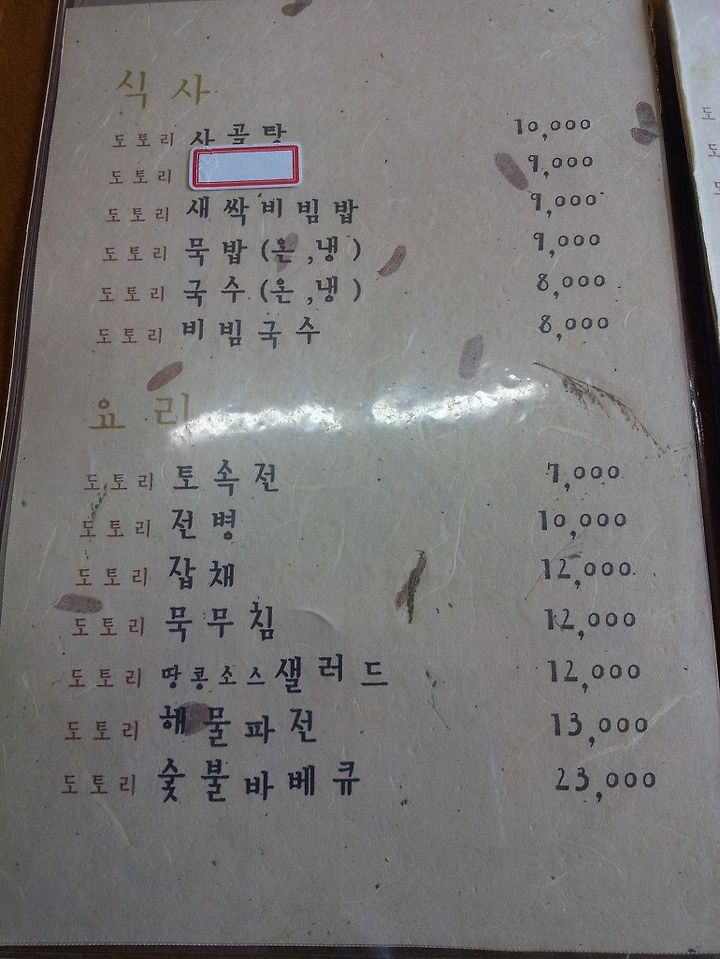 식사
도토리 사골탕 10,000
도토리 9,000
도토리 새싹비빔밥 9,000
도토리 묵밥(온,냉) 9,000
도토리 국수(온,냉) 8,000
도토리 비빔국수 8,000
요리
도토리 토속전 7,000
도토리 전병 10,000
도토리 잡채 12,000
도토리 묵무침 12,000
도토리 땅콩소스샐러드 12,000
도토리 해물파전 13,000
도토리 숯불바베큐 23,000